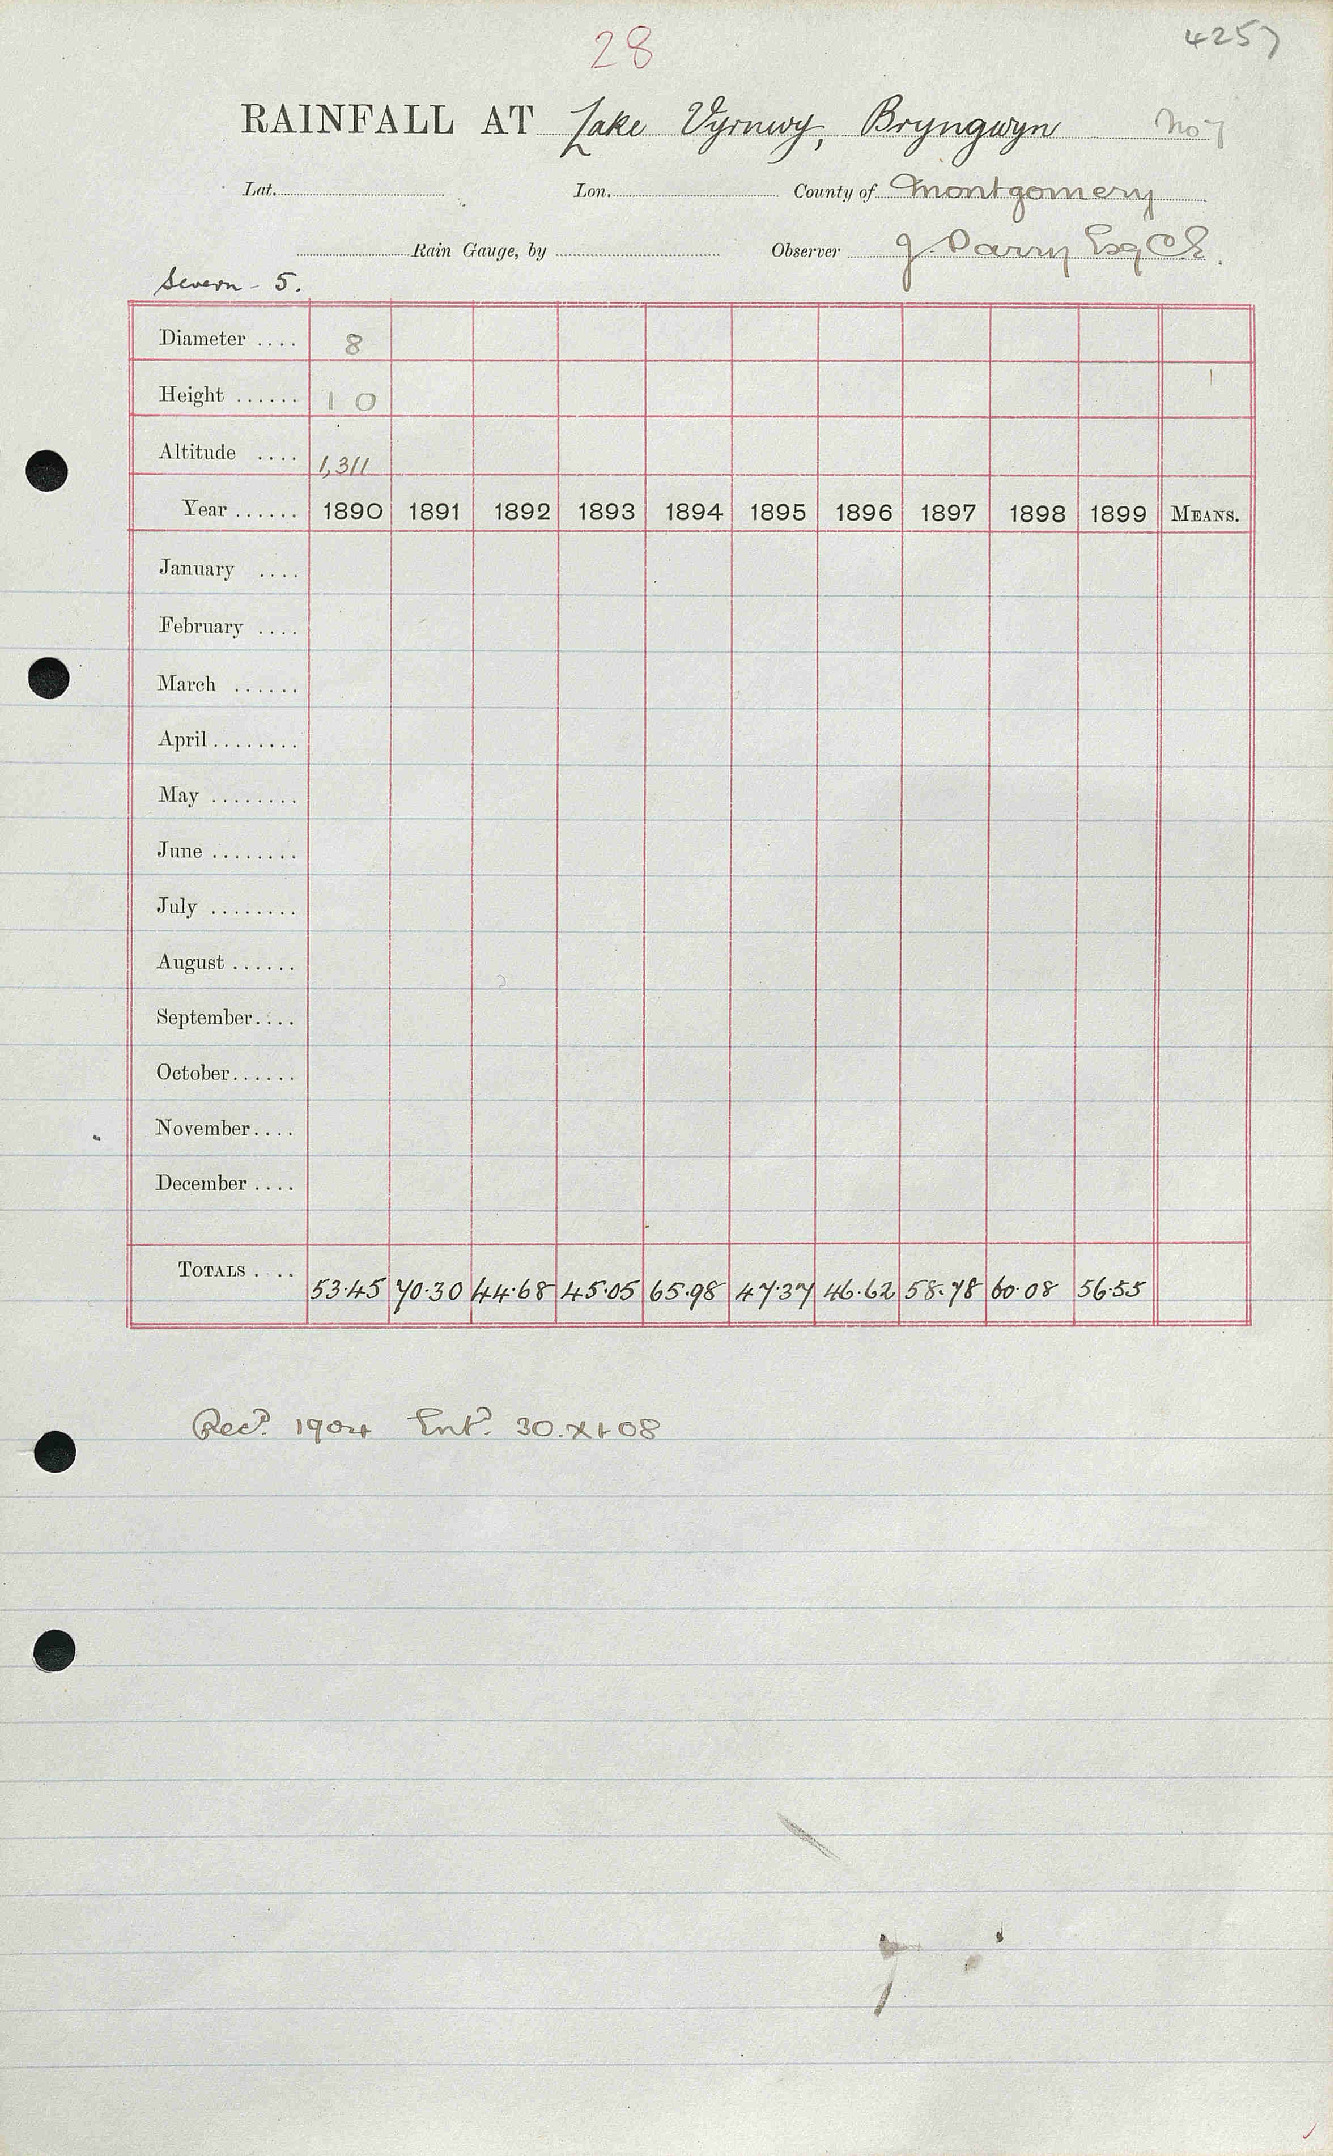 28
4257
RAINFALL AT Lake Vyrnwy, Bryngwyn No 7
Lat. Lon. County of Montgomery
Rain Gauge, by Observer J. Parry Esq CE.
Severn - 5.
Diameter .... 8
Height ...... 1 0
Altitude .... 1,311
Year ...... 1890 1891 1892 1893 1894 1895 1896 1897 1898 1899 MEANS.
January ....
February ....
March ......
April ........
May ........
June ........
July ........
August ......
September ....
October ......
November ....
December ....
TOTALS .... 53.45 70.30 44.68 45.05 65.98 47.37 46.62 58.78 60.08 56.55
Recd. 1904 Entd. 30.XI 08